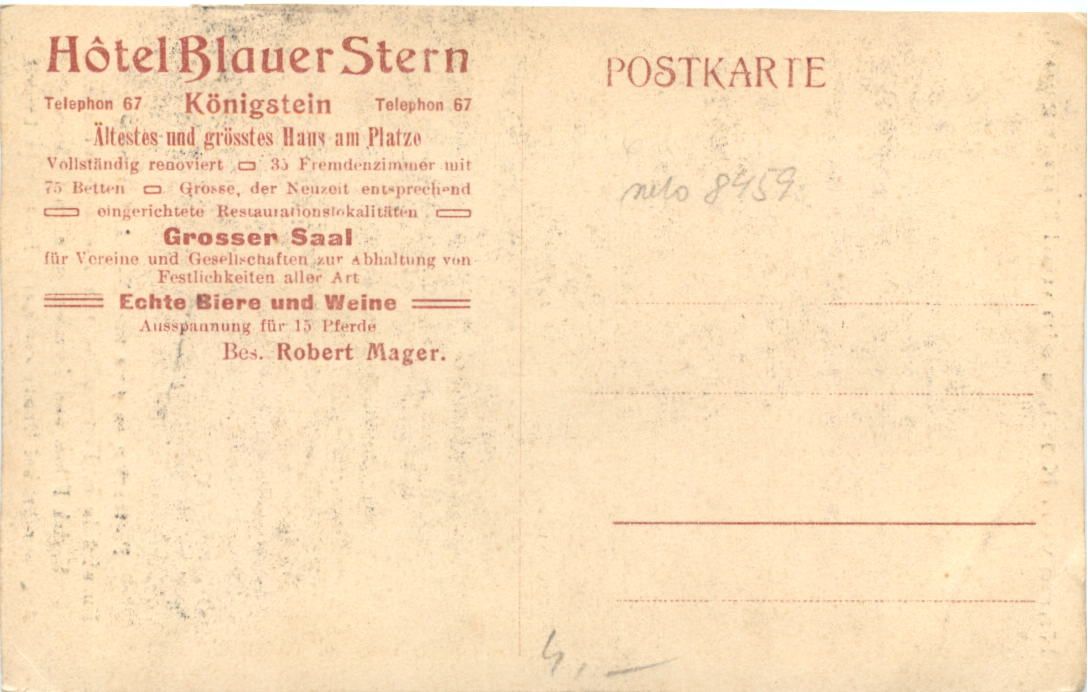 Hôtel Blauer Stern
Telephon 67 Königstein Telephon 67
Ältestes und grösstes Haus am Platze
Vollständig renoviert 35 Fremdenzimmer mit
75 Betten Grosse, der Neuzeit entsprechend
eingerichtete Restaurationslokalitäten
Grosser Saal
für Vereine und Gesellschaften zur Abhaltung von
Festlichkeiten aller Art
Echte Biere und Weine
Ausspannung für 15 Pferde
Bes. Robert Mager.
POSTKARTE
8459
4,—